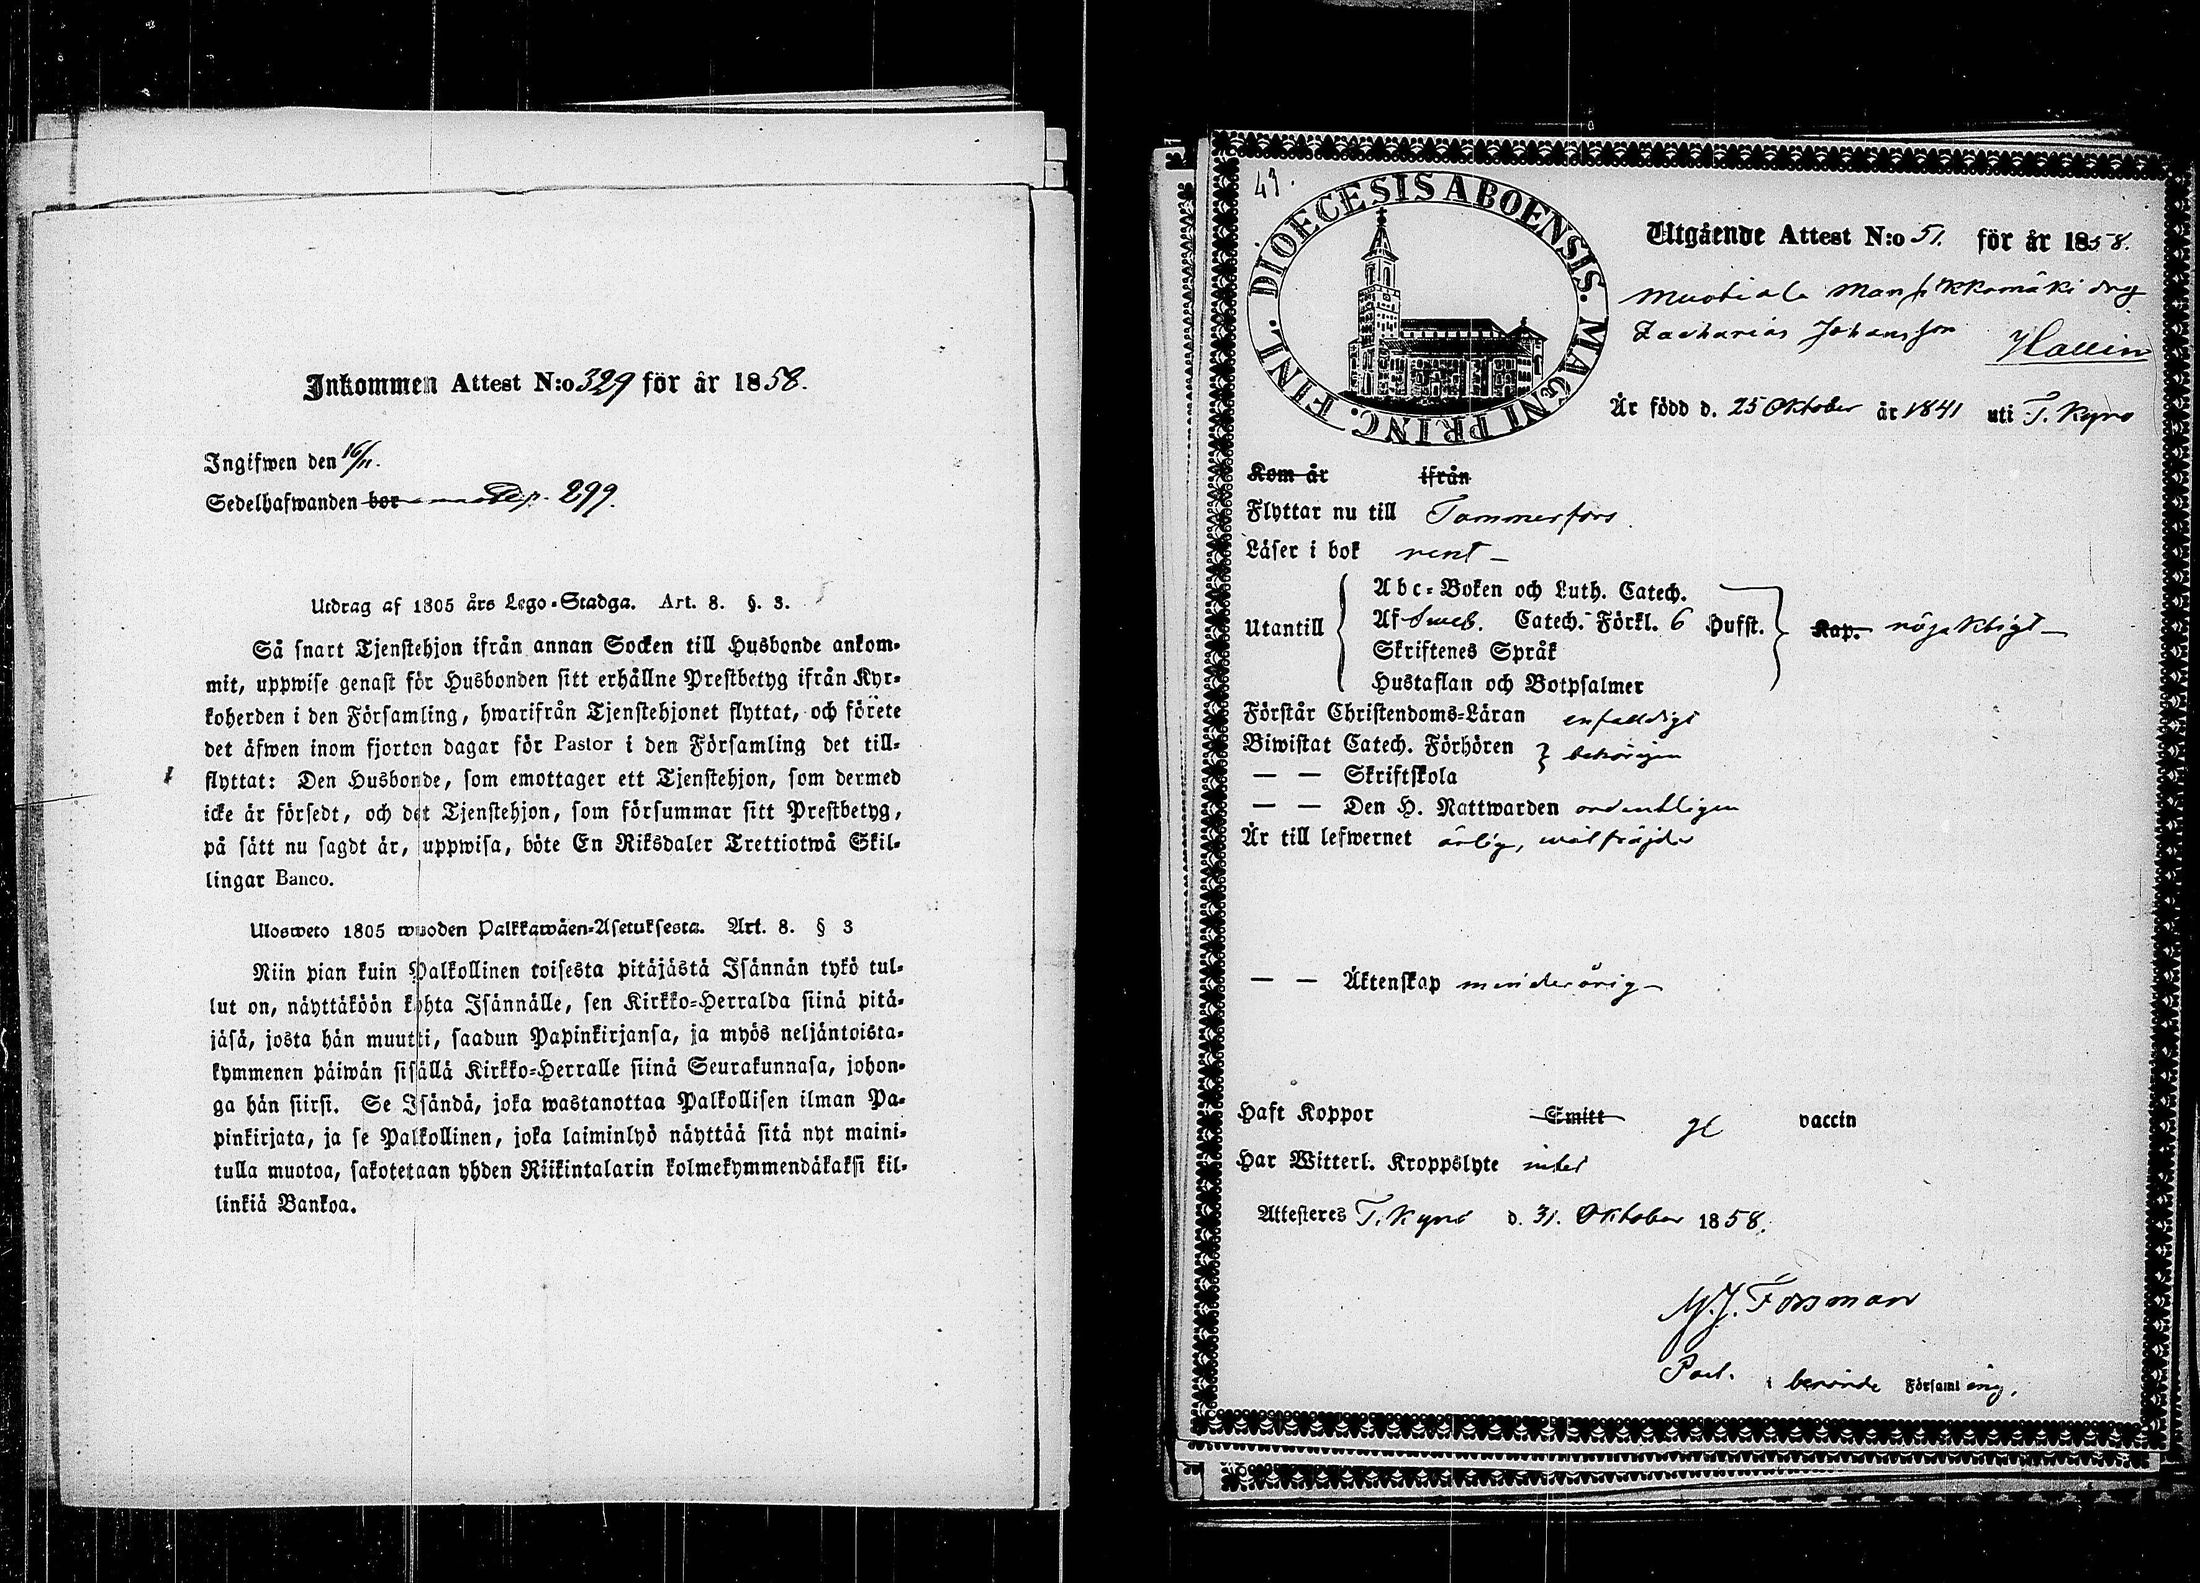 Inkommen Attest N:o 329 för år 1858.
Ingifwen den 16/11.
Sedelhafwanden bor p. 299.
Utdrag af 1805 års Lego-Stadga. Art. 8. §. 3.
Så snart Tjenstehjon ifrån annan Socken till Husbonde ankom-
mit, uppwise genast för Husbonden sitt erhållne Prestbetyg ifrån Kyr-
koherden i den Församling, hwarifrån Tjenstehjonet flyttat, och förete
det äfwen inom fjorton dagar för Pastor i den Församling det till-
flyttat: Den Husbonde, som emottager ett Tjenstehjon, som dermed
icke är försedt, och det Tjenstehjon, som försummar sitt Prestbetyg,
på sätt nu sagdt är, uppwisa, böte En Riksdaler Trettiotwå Skil-
lingar Banco.
Ulosweto 1805 wuoden Palkkawäen-Asetuksesta. Art. 8. § 3
Niin pian kuin Palkollinen toisesta pitäjästä Isännän tykö tul-
lut on, näyttäköön kohta Isännälle, sen Kirkko-Herralda siinä pitä-
jäsä, josta hän muutti, saadun Papinkirjansa, ja myös neljäntoista-
kymmenen päiwän sisällä Kirkko-Herralle siinä Seurakunnasa, johon-
ga hän siirsi. Se Isändä, joka wastanottaa Palkollisen ilman Pa-
pinkirjata, ja se Palkollinen, joka laiminlyö näyttää sitä nyt maini-
tulla muotoa, sakotetaan yhden Riikintalarin kolmekymmendäkaksi kil-
linkiä Bankoa.
49.
DIOECESIS ABOENSIS. MAGNI PRINC. FINL.
Utgående Attest N:o 51. för år 1858.
Muotiala drg
Zacharias Johansson
Hallin
Är född d. 25 Oktober år 1841 uti T. Kyro
Kom år ifrån
Flyttar nu till Tammerfors.
Läser i bok rent –
Abc-Boken och Luth. Catech.
Utantill Af Sweb. Catech. Förkl. 6 Hufst. Kap. nöjaktigt –
Skriftenes Språk
Hustaflan och Botpsalmer
Förstår Christendoms-Läran enfaldigt
Biwistat Catech. Förhören behörigen
— — Skriftskola
— — Den H. Nattwarden ordentligen
Är till lefwernet ärlig, wälfräjdad
— — Äktenskap minderårig –
Haft Koppor Smitt vaccin
Har Witterl. Kroppslyte intet
Attesteres T. Kyro d. 31. Oktober 1858.
M. J. Forsman
Past. i berörde Församling.